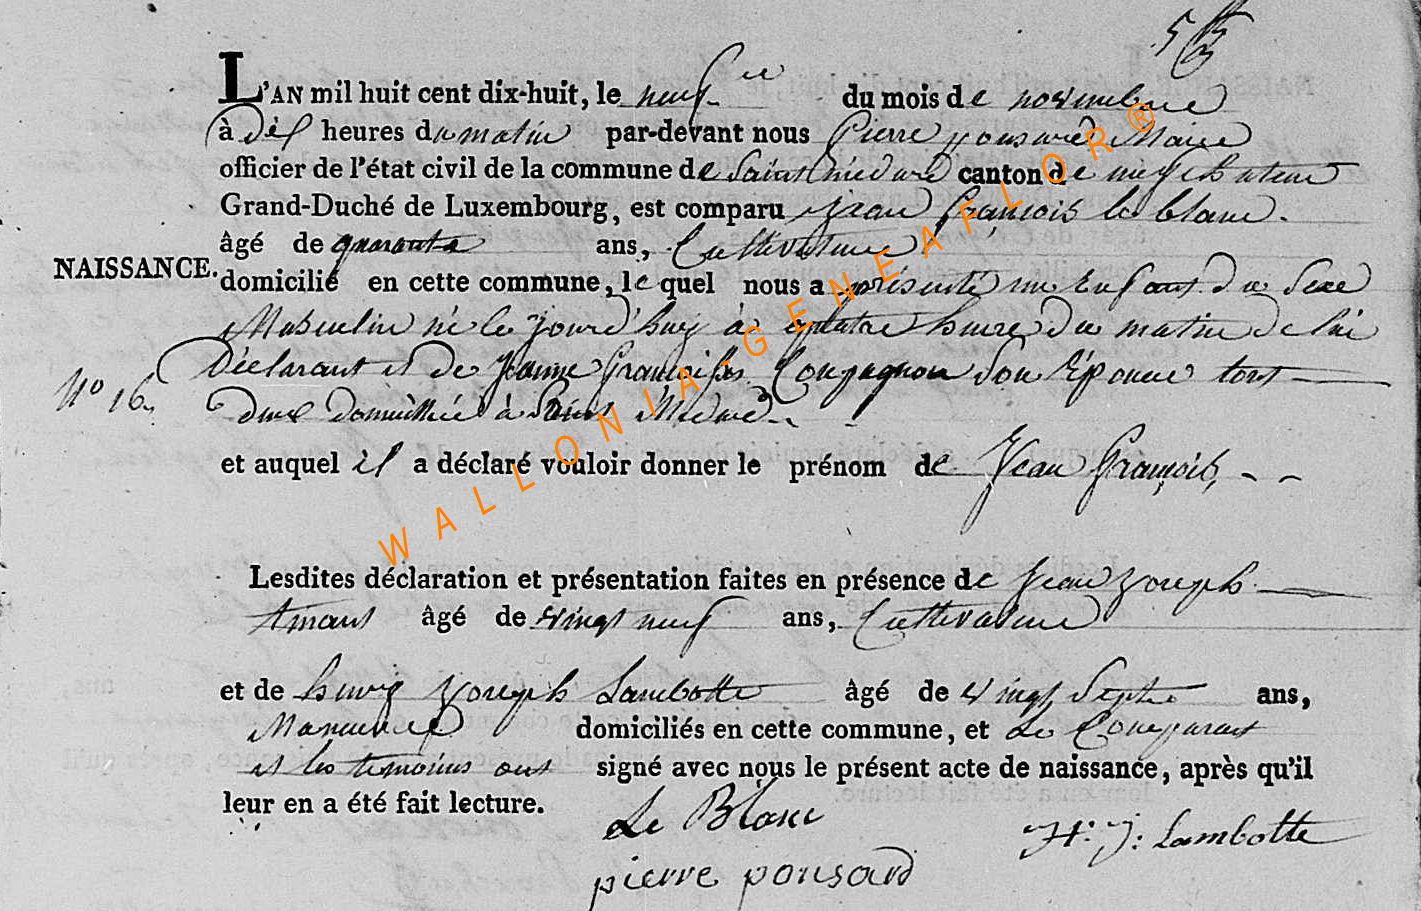 L'AN mil huit cent dix-huit, le neuf du mois de novembre
à dix heures du matin par-devant nous Pierre ponsard Maire
officier de l'état civil de la commune de Saint médard canton de neufchateau
Grand-Duché de Luxembourg, est comparu jean françois le blanc.
âgé de quarante ans, Cultivateur
NAISSANCE. domicilié en cette commune, le quel nous a présenté un Enfant du Sexe
Masculin né le jourd'huy à quatre heure du matin de lui
Déclarant et de Jeanne Françoise Compagnon son Épouse tous
N° 16. deux domicilié à Saint Médard.
et auquel il a déclaré vouloir donner le prénom de Jean François, - -
Lesdites déclaration et présentation faites en présence de Jean Joseph
âgé de vingt neuf ans, Cultivateur
et de henry Joseph Lambotte âgé de vingt Septe ans,
Manœuvre domiciliés en cette commune, et Le Comparant
et les temoins ont signé avec nous le présent acte de naissance, après qu'il
leur en a été fait lecture.
Le Blanc
H: J: Lambotte
pierre ponsard
WALLONIA-GENEAFLOR®